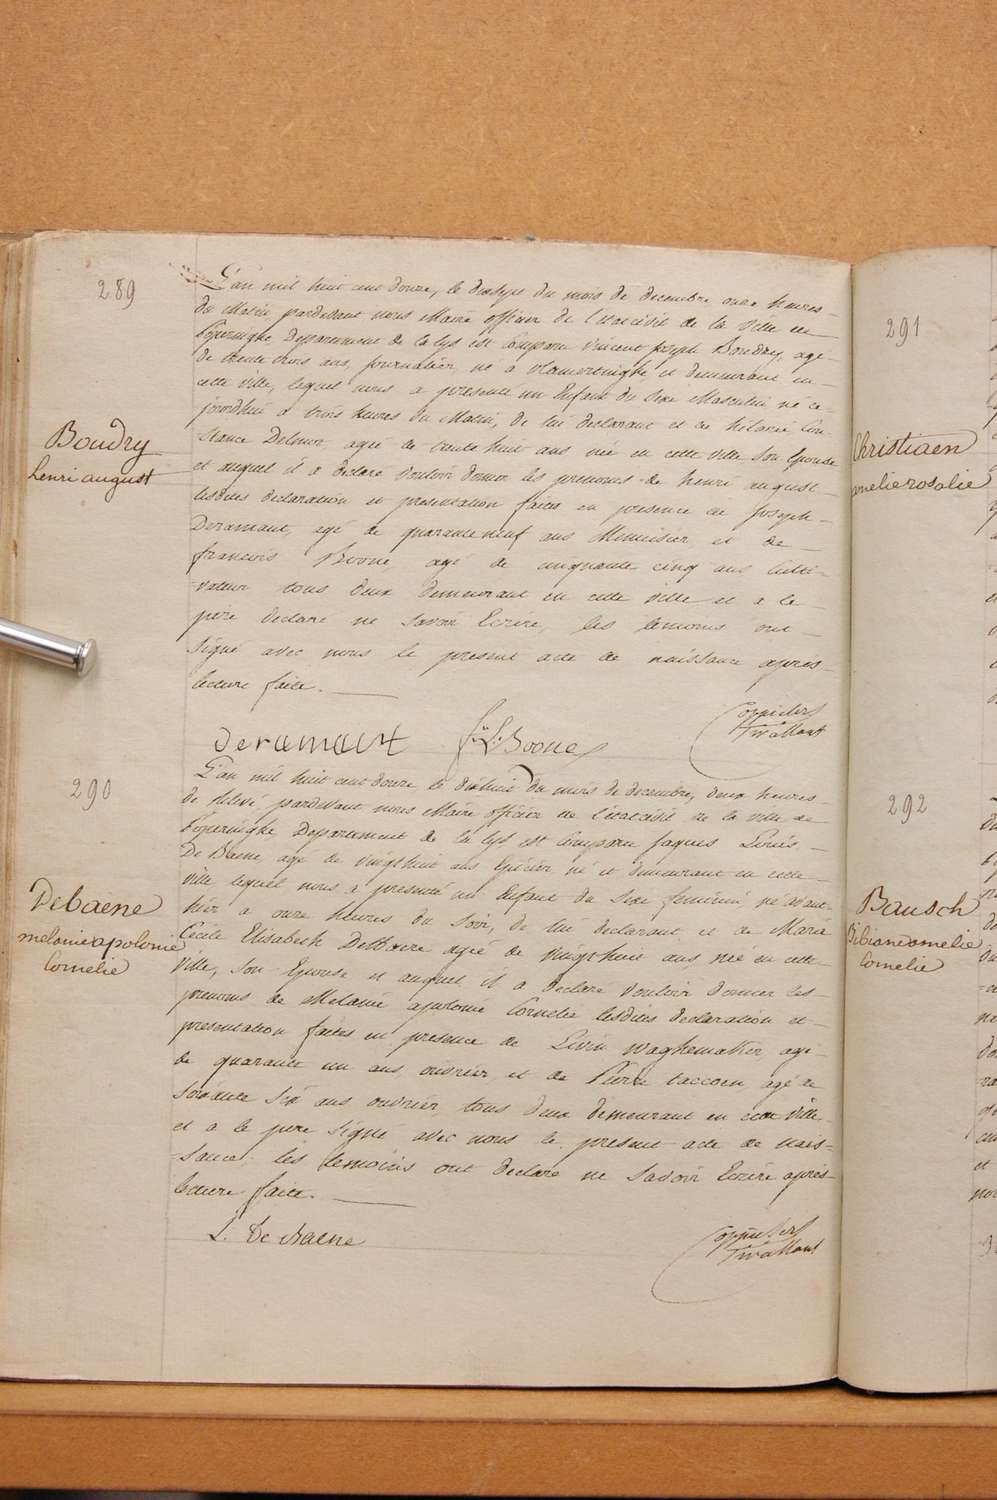 289
Boudry
henri august
L'an mil huit cent douze, le dixsept du mois de decembre onze heures
du Matin pardevant nous Maire officier de l'etat civil de la ville de
Poperinghe Departement de la Lys est Comparu Vincent Joseph Boudry, agé
de trente trois ans, journalier, né à Vlamertinghe et demeurant en
cette ville, lequel nous a presenté un Enfant du Sexe Masculin né ce
jourdhui a trois heures du Matin, de lui declarant et de hélarie Con
stance agé de trente huit ans née en cette ville Son Epouse
et auquel il a declaré vouloir donner les prenoms de henri august
lesdites declaration et presentation faites en presence de Joseph
Deramaut, agé de quarante neuf ans Menuisier et de
francois Boone, agé de cinquante cinq ans Culti-
-vateur tous deux demeurant en cette ville et a le
père declaré ne Savoir Ecrire, les temoins ont
Signé avec nous le present acte de naissance après
lecture faite.
deramaut f: L: Boone
290
Debaene
melanie apolonie
Cornelie
L'an mil huit cent douze le dixhuit du mois de decembre, deux heures
de relevé pardevant nous Maire officier de l'etat civil de la ville de
Poperinghe Departement de la Lys est Comparu Jaques Louis
De Baene, agé de vingthuit ans Epicier, né et demeurant en cette
ville, lequel nous a presenté un Enfant du Sexe feminin né avant
hier a onze heures du Soir, de lui declarant et de Marie
Cécile Elisabeth agée de vingthuit ans née en cette
ville, Son Epouse et auquel il a declaré vouloir donner les
prenoms de Melanie apolonie Cornelie lesdites declaration et
presentation faites en presence de Livin Waghemaker, agé
de quarante un ans, ouvrier, et de Pierre taccoen, agé de
Soixante Six ans ouvrier tous deux demeurant en cette ville
et a le pere Signé avec nous le present acte de nais=
=sance les temoins ont declaré ne Savoir Ecrire après
lecture faite.
L. De Baene
291
Christiaen
amelie rosalie
292
Bausch
Bibiane amelie
Cornelie